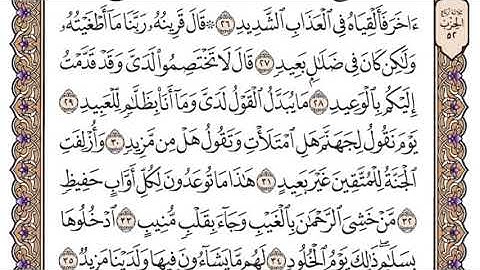 ءَاخَرَ فَأَلْقِيَاهُ فِي ٱلْعَذَابِ ٱلشَّدِيدِ ٢٦ ۞ قَالَ قَرِينُهُۥ رَبَّنَا مَآ أَطْغَيْتُهُۥ
وَلَٰكِن كَانَ فِي ضَلَٰلٍۭ بَعِيدٍ ٢٧ قَالَ لَا تَخْتَصِمُوا۟ لَدَىَّ وَقَدْ قَدَّمْتُ
إِلَيْكُم بِٱلْوَعِيدِ ٢٨ مَا يُبَدَّلُ ٱلْقَوْلُ لَدَىَّ وَمَآ أَنَا۠ بِظَلَّٰمٍ لِّلْعَبِيدِ ٢٩
يَوْمَ نَقُولُ لِجَهَنَّمَ هَلِ ٱمْتَلَأْتِ وَتَقُولُ هَلْ مِن مَّزِيدٍ ٣٠ وَأُزْلِفَتِ
ٱلْجَنَّةُ لِلْمُتَّقِينَ غَيْرَ بَعِيدٍ ٣١ هَٰذَا مَا تُوعَدُونَ لِكُلِّ أَوَّابٍ حَفِيظٍ
٣٢ مَّنْ خَشِيَ ٱلرَّحْمَٰنَ بِٱلْغَيْبِ وَجَآءَ بِقَلْبٍ مُّنِيبٍ ٣٣ ٱدْخُلُوهَا
بِسَلَٰمٍ ذَٰلِكَ يَوْمُ ٱلْخُلُودِ ٣٤ لَهُم مَّا يَشَآءُونَ فِيهَا وَلَدَيْنَا مَزِيدٌ ٣٥
الحزب
٥٢